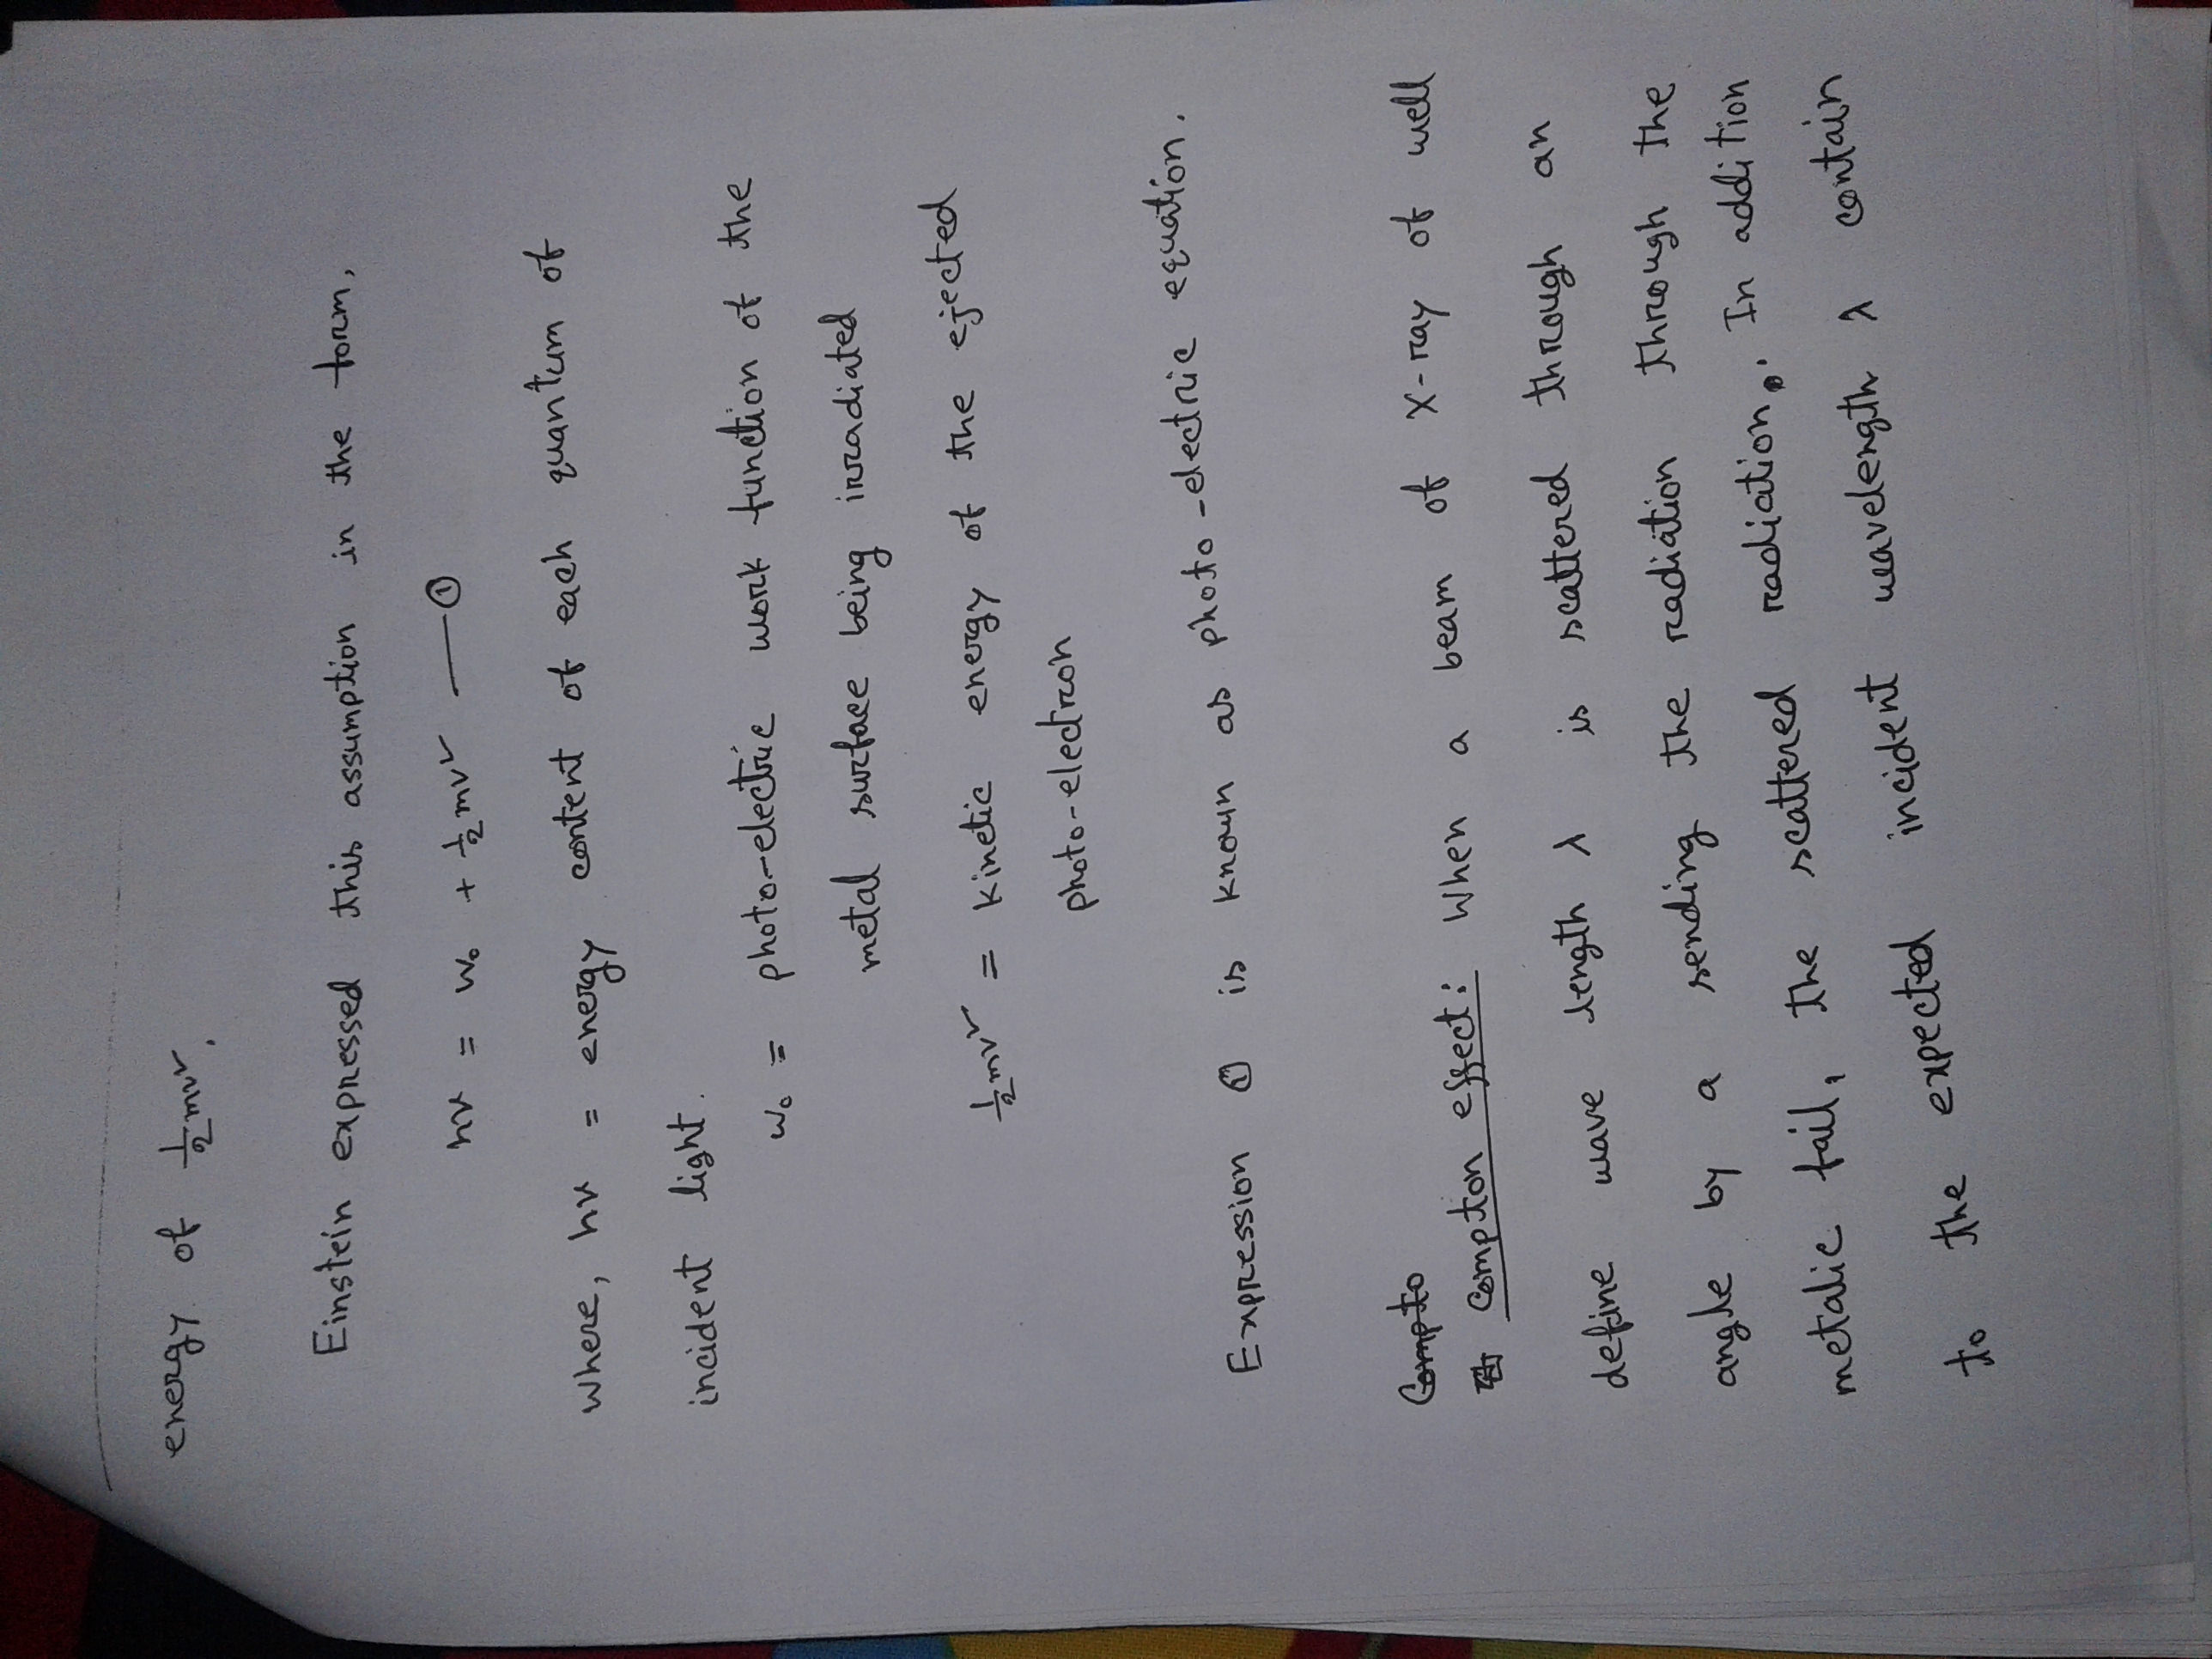 energy of ½mv².
Einstein expressed this assumption in the form,
hν = W₀ + ½mv² —①
Where, hν = energy content of each quantum of
incident light.
W₀ = photo-electric work function of the
metal surface being irradiated
½mv² = kinetic energy of the ejected
photo-electron
Expression ① is known as photo-electric equation.
Compto
Compton effect: When a beam of X-ray of well
define wave length λ is scattered through an
angle by a sending the radiation through the
metalic fail, the scattered radiation. In addition
to the expected incident wavelength λ contain